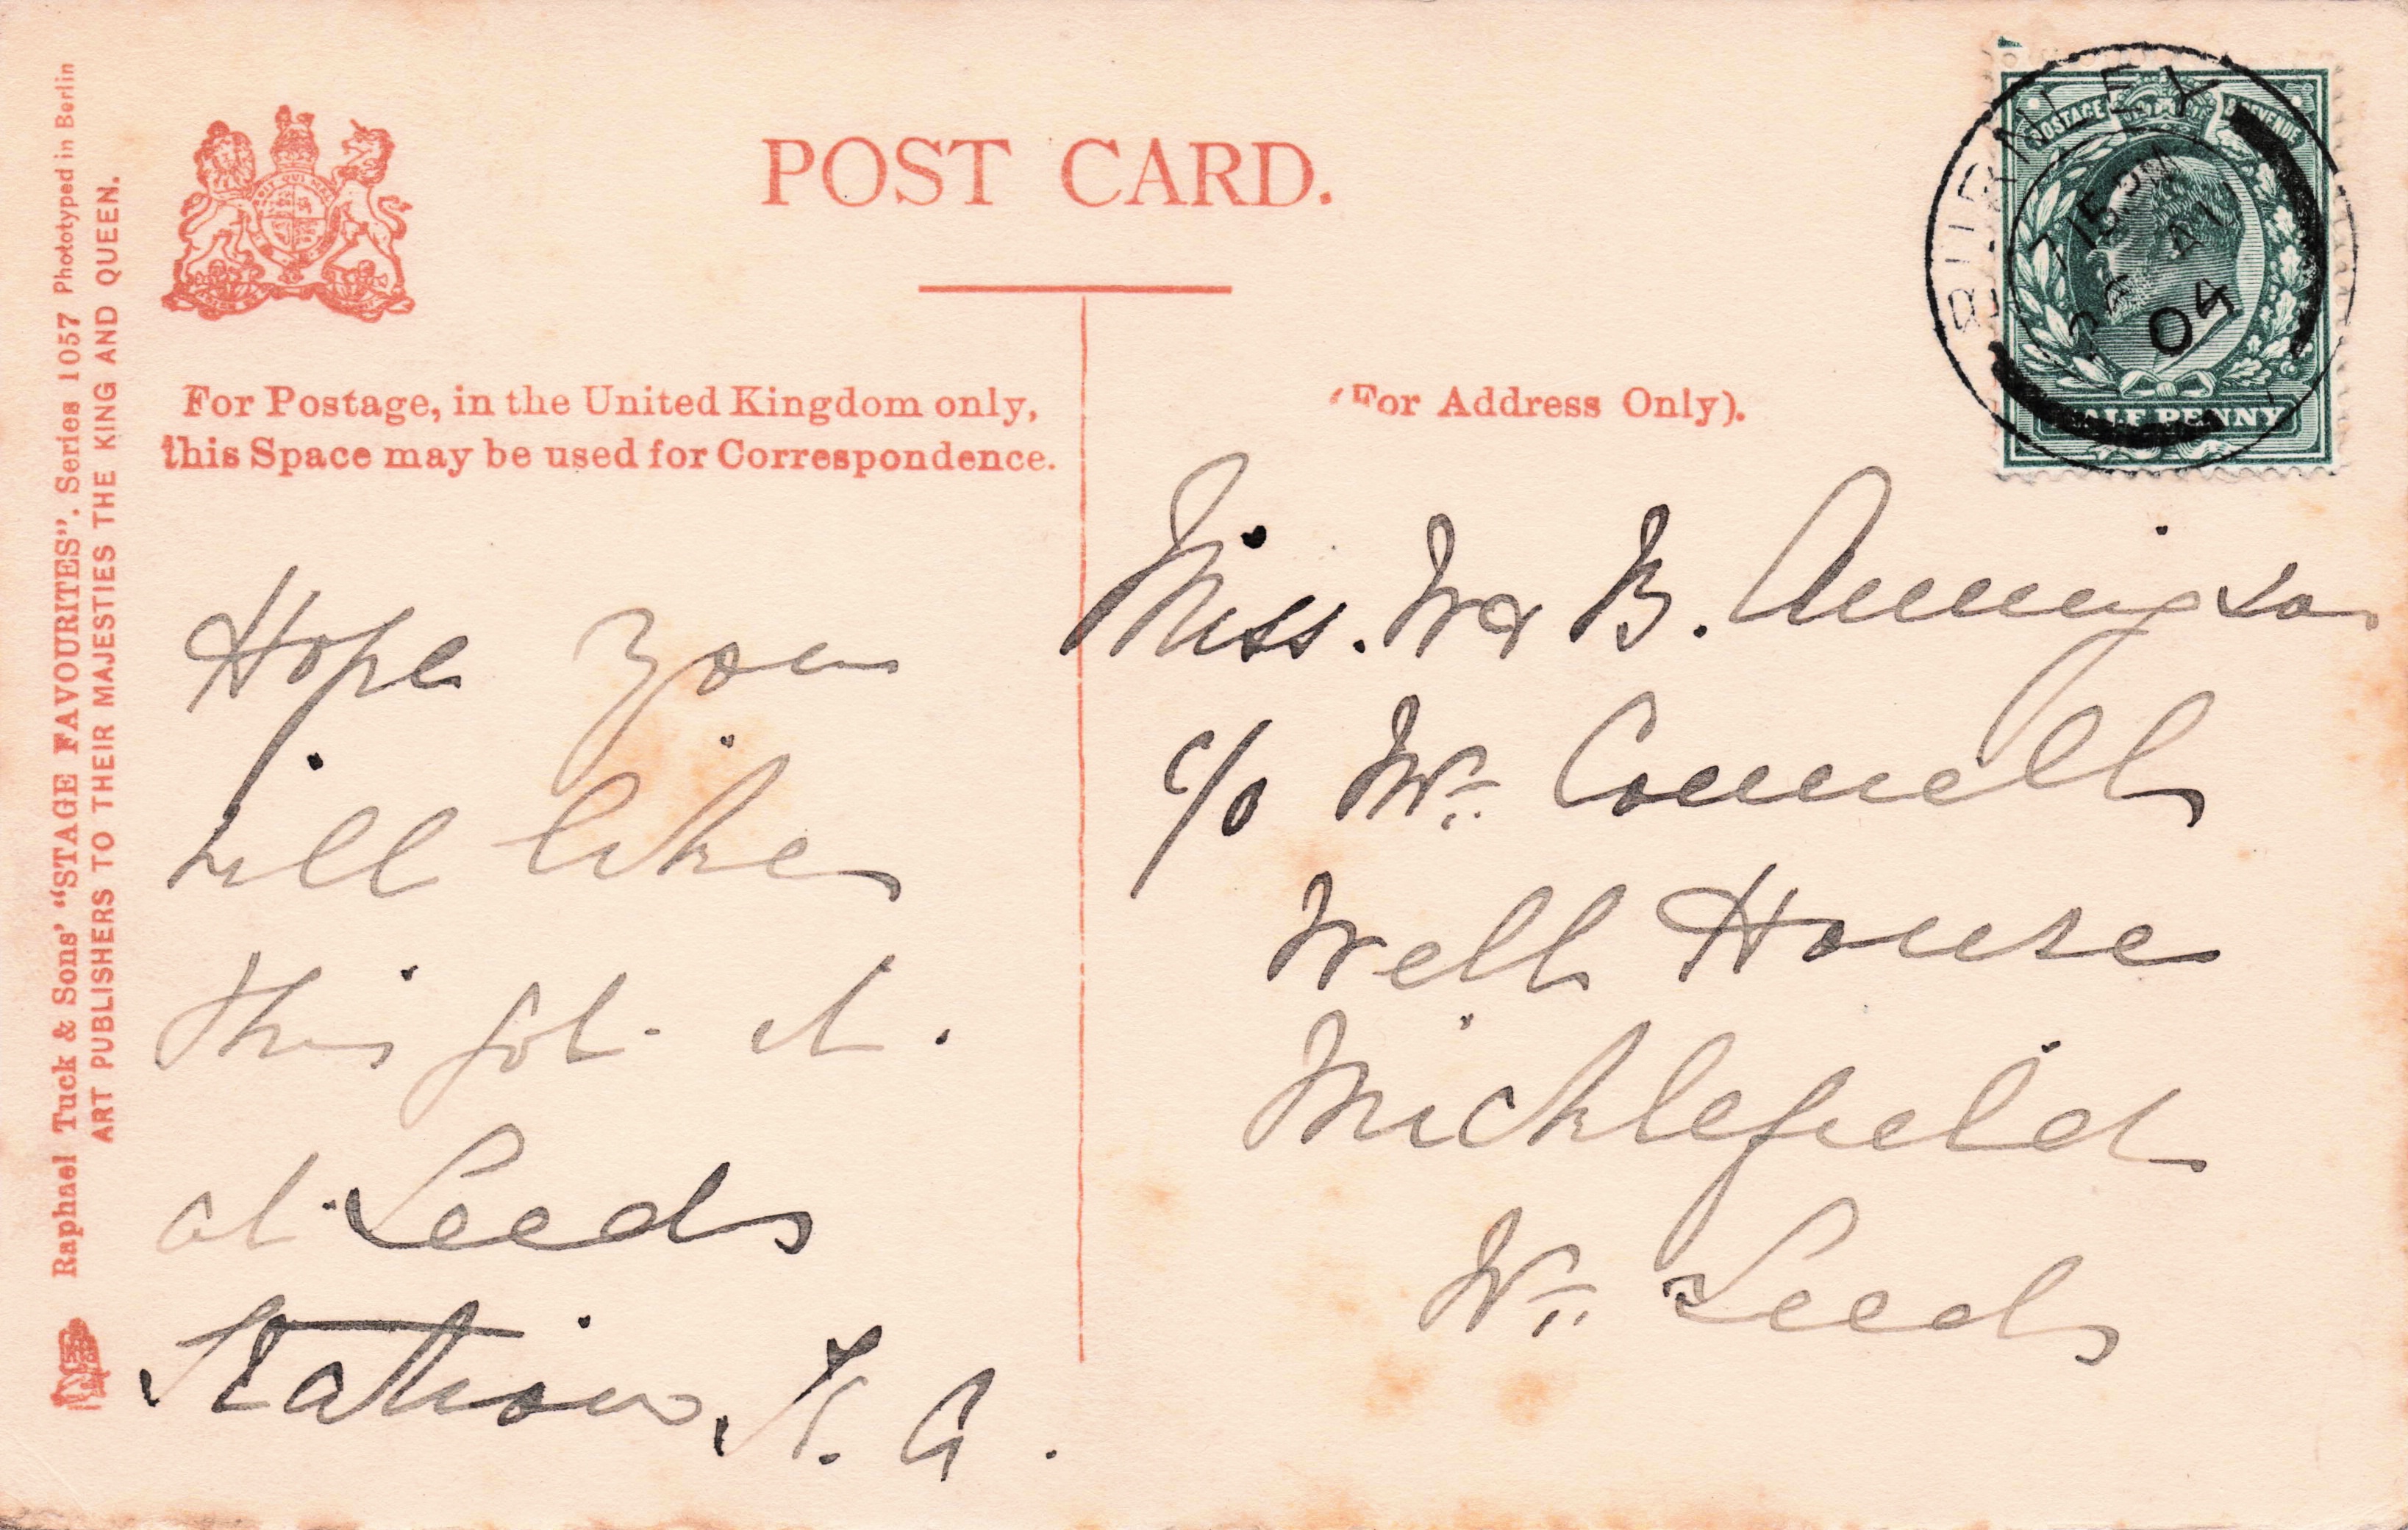 POST CARD.
POSTAGE & REVENUE
BURNLEY
7 15 PM
AU
04
HALF PENNY
For Postage, in the United Kingdom only,
this Space may be used for Correspondence.
(For Address Only).
Hope you
will like
this got it.
at Leeds
Station,
Miss. W & B.
c/o Mr Connell
Well House
Micklefield
Nr Leeds
Raphael Tuck & Sons' "STAGE FAVOURITES". Series 1057 Phototyped in Berlin
ART PUBLISHERS TO THEIR MAJESTIES THE KING AND QUEEN.